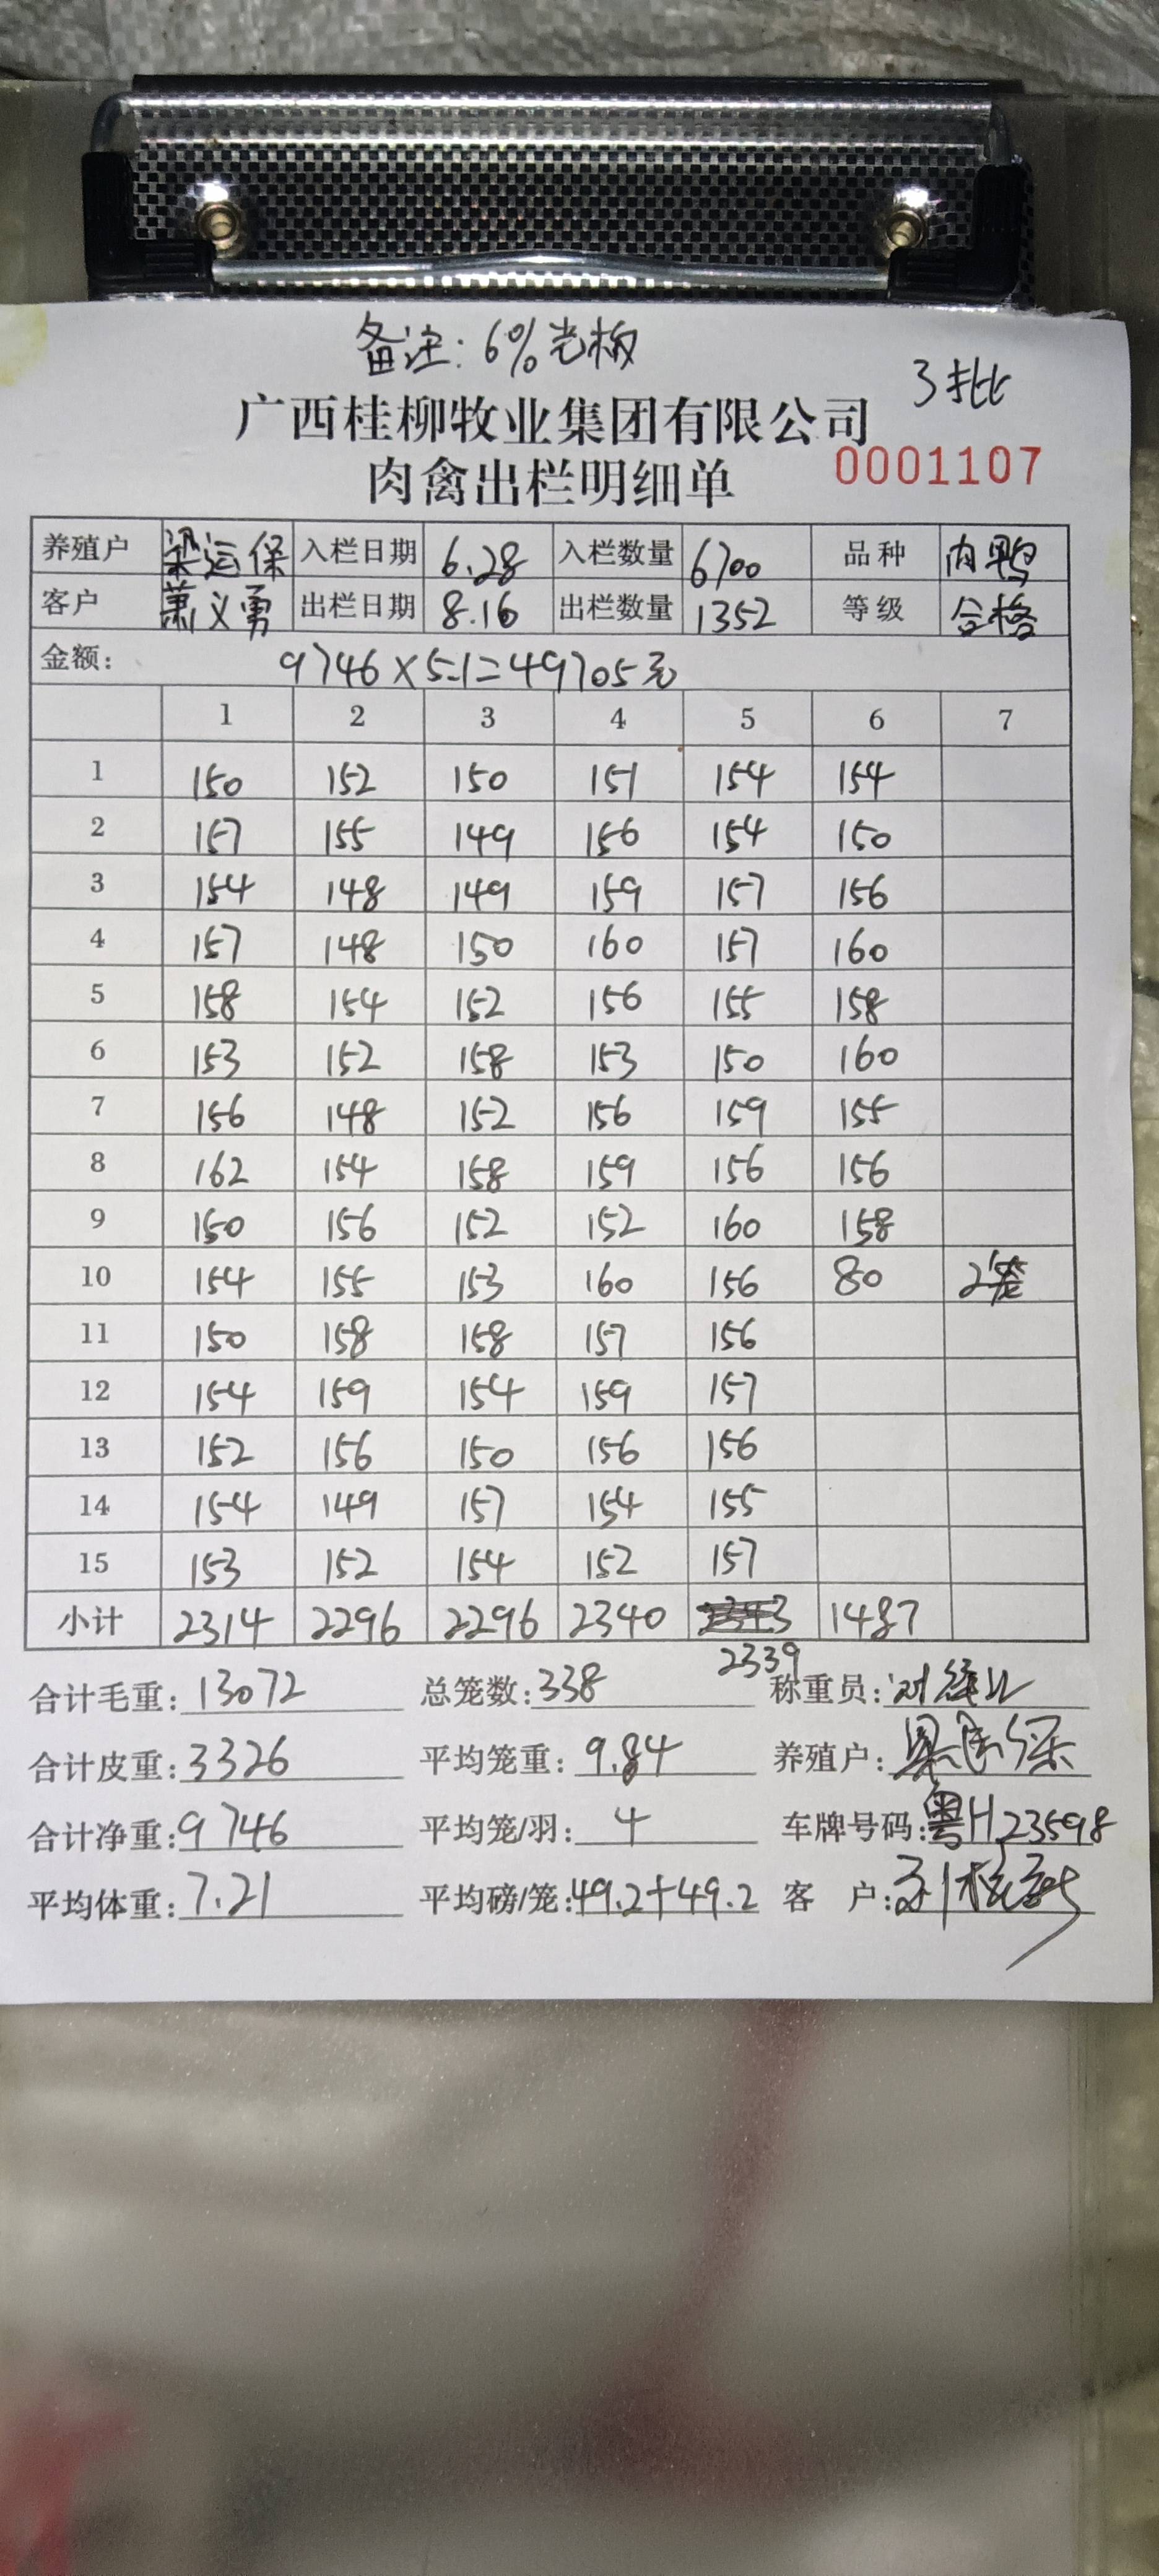 备注: 6%光板
3批
广西桂柳牧业集团有限公司
肉禽出栏明细单 0001107
养殖户 梁运保 入栏日期 6.28 入栏数量 6700 品种 肉鸭
客户 萧义勇 出栏日期 8.16 出栏数量 1352 等级 合格
金额: 9746×5.1=49705元
1 2 3 4 5 6 7
1 150 152 150 151 154 154
2 157 155 149 156 154 150
3 154 148 149 159 157 156
4 157 148 150 160 157 160
5 158 154 152 156 155 158
6 153 152 158 153 150 160
7 156 148 152 156 159 155
8 162 154 158 159 156 156
9 150 156 152 152 160 158
10 154 155 153 160 156 80 2笼
11 150 158 158 157 156
12 154 159 154 159 157
13 152 156 150 156 156
14 154 149 157 154 155
15 153 152 154 152 157
小计 2314 2296 2296 2340 2343 1487
2339
合计毛重: 13072 总笼数: 338 称重员:
合计皮重: 3326 平均笼重: 9.84 养殖户:
合计净重: 9746 平均笼/羽: 4 车牌号码: 粤H23598
平均体重: 7.21 平均磅/笼: 49.2+49.2 客 户: